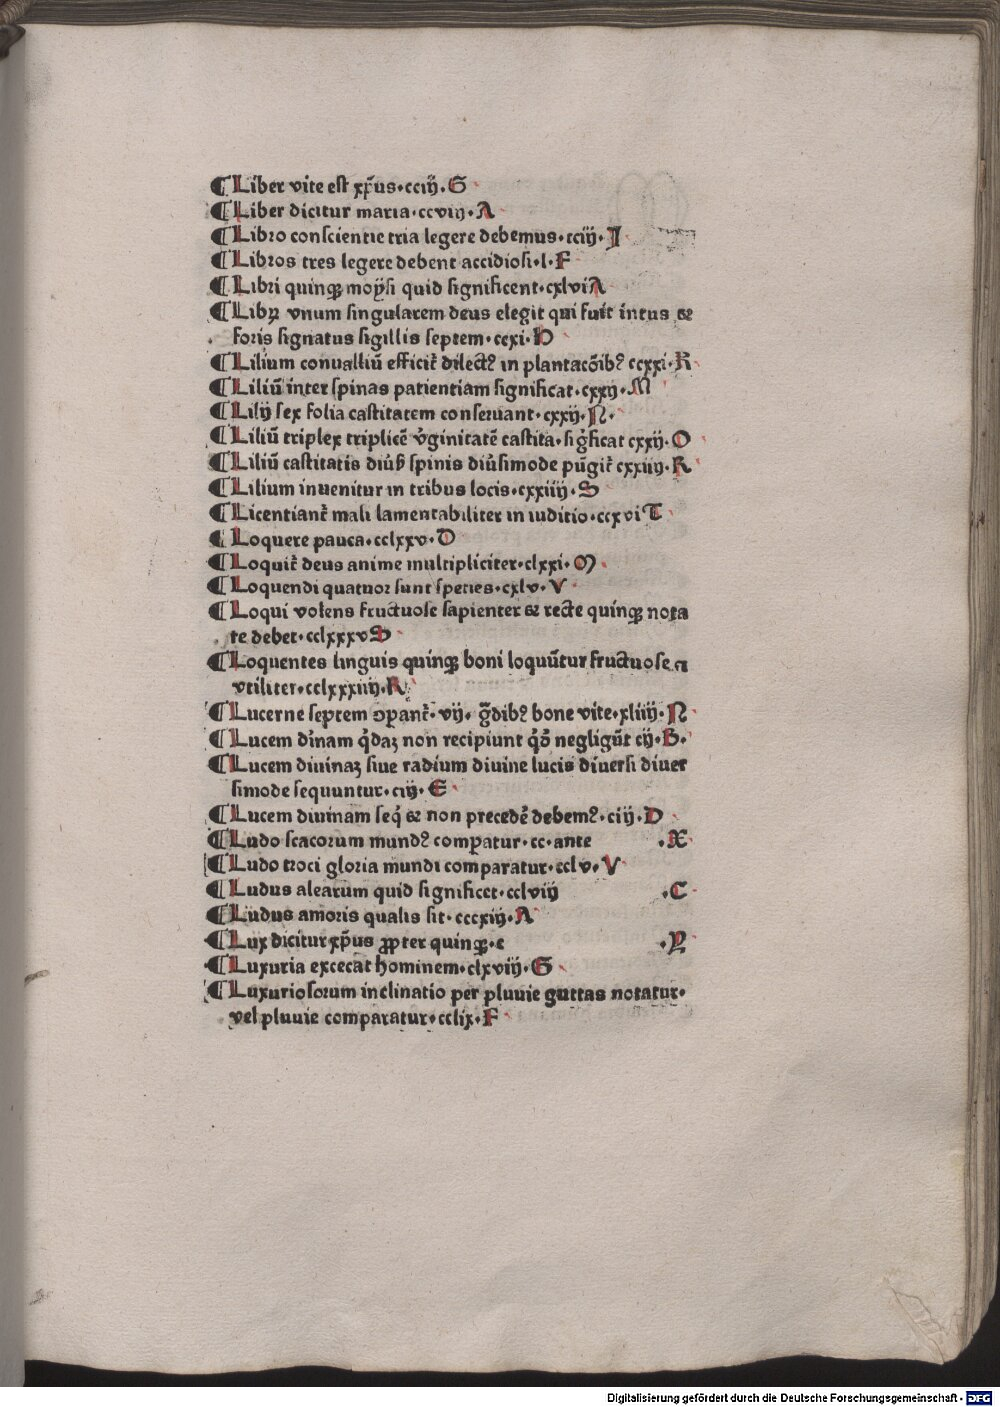 ¶Liber vite est xp̄us·cciij·G
¶Liber dicitur maria·ccviij·A
¶Libro conscientie tria legere debemus·cciij·J
¶Libros tres legere debent accidiosi·l·F
¶Libri quinqꝫ moysi quid significent·cxlvi A
¶Libꝝ vnum singularem deus elegit qui fuit intus ⁊
foris signatus sigillis septem·ccxi·D
¶Lilium conualliū efficit᷑ dilectꝰ in plantacōibꝰ ccxxi·R
¶Liliū inter spinas patientiam significat·cxxij·M
¶Lilij sex folia castitatem conseruant·cxxij·N·
¶Liliū triplex triplicē v̓ginitatē castita·sig̓ficat cxxij·O
¶Liliū castitatis diu̓b̓ spinis diu̓simode pūgit᷑ cxxiiij·R
¶Lilium inuenitur in tribus locis·cxxiiij·S
¶Licentiant᷑ mali lamentabiliter in iuditio·ccxvi T
¶Loquere pauca·cclxxv·D
¶Loquit᷑ deus anime multipliciter·clxxi·M
¶Loquendi quatuor sunt species·cxlv·V
¶Loqui volens fructuose sapienter ⁊ recte quinqꝫ nota
te debet·cclxxxv S
¶Loquentes linguis quinqꝫ boni loquūtur fructuose ⁊
vtiliter·cclxxxiiij·R
¶Lucerne septem ꝯparant᷑·vij·g̅dibꝰ bone vite·xliiij·N
¶Lucem diu̓nam q̓daꝫ non recipiunt q̓ȝ negligūt cij·B·
¶Lucem diuinaꝫ siue radium diuine lucis diuersi diuer
simode sequuntur·ciij·E
¶Lucem diuinam seq̓ ⁊ non precedē debemꝰ·ciij·D
¶Ludo scacorum mundꝰ comparatur·cc·ante ·X
¶Ludo troci gloria mundi comparatur·cclv·V
¶Ludus alearum quid significet·cclviij ·C
¶Ludus amoris qualis sit·cccxiij·A
¶Lux dicitur xp̄us ꝓpter quinqꝫ·c ·P
¶Luxuria excecat hominem·clxviij·G
¶Luxuriosorum inclinatio per pluuie guttas notatur·
vel pluuie comparatur·cclix·F
Digitalisierung gefördert durch die Deutsche Forschungsgemeinschaft · DFG